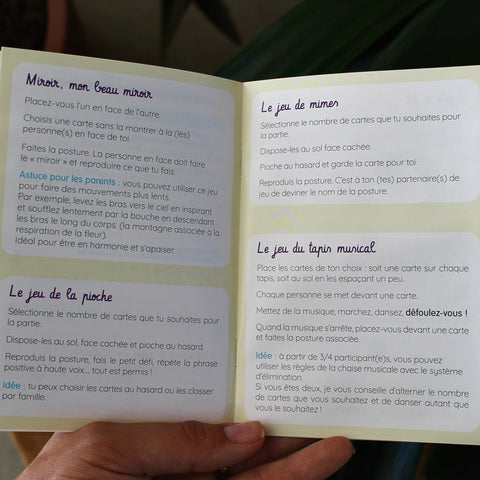 Miroir, mon beau miroir
Placez-vous l'un en face de l'autre.
Choisis une carte sans la montrer à la (les)
personne(s) en face de toi.
Faites la posture. La personne en face doit faire
le « miroir » et reproduire ce que tu fais.
Astuce pour les parents : vous pouvez utiliser ce jeu
pour faire des mouvements plus lents.
Par exemple, levez les bras vers le ciel en inspirant
et soufflez lentement par la bouche en descendant
les bras le long du corps. (la montagne associée à la
respiration de la fleur).
Idéal pour être en harmonie et s'apaiser.
Le jeu de la pioche
Sélectionne le nombre de cartes que tu souhaites pour
la partie.
Dispose-les au sol, face cachée et pioche au hasard.
Reproduis la posture, fais le petit défi, répète la phrase
positive à haute voix... tout est permis !
Idée : tu peux choisir les cartes au hasard ou les classer
par famille.
Le jeu de mimes
Sélectionne le nombre de cartes que tu souhaites pour
la partie.
Dispose-les au sol face cachée.
Pioche au hasard et garde la carte pour toi.
Reproduis la posture. C'est à ton (tes) partenaire(s) de
jeu de deviner le nom de la posture.
Le jeu du tapis musical
Place les cartes de ton choix : soit une carte sur chaque
tapis, soit au sol en les espaçant un peu.
Chaque personne se met devant une carte.
Mettez de la musique, marchez, dansez, défoulez-vous !
Quand la musique s'arrête, placez-vous devant une carte
et faites la posture associée.
Idée : à partir de 3/4 participant(e)s, vous pouvez
utiliser les règles de la chaise musicale avec le système
d'élimination.
Si vous êtes deux, je vous conseille d'alterner le nombre
de cartes que vous souhaitez et de danser autant que
vous le souhaitez !